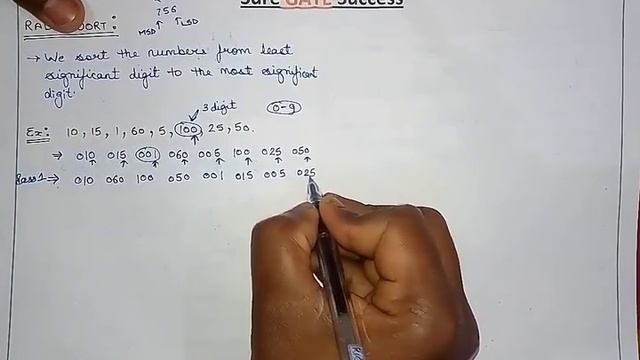 Sure GATE Success
756
MSD LSD
→ We sort the numbers from least
significant digit to the most significant
digit.
3 digit
0-9
Ex: 10, 15, 1, 60, 5, 100, 25, 50.
→ 010 015 001 060 005 100 025 050
Pass1→ 010 060 100 050 001 015 005 025